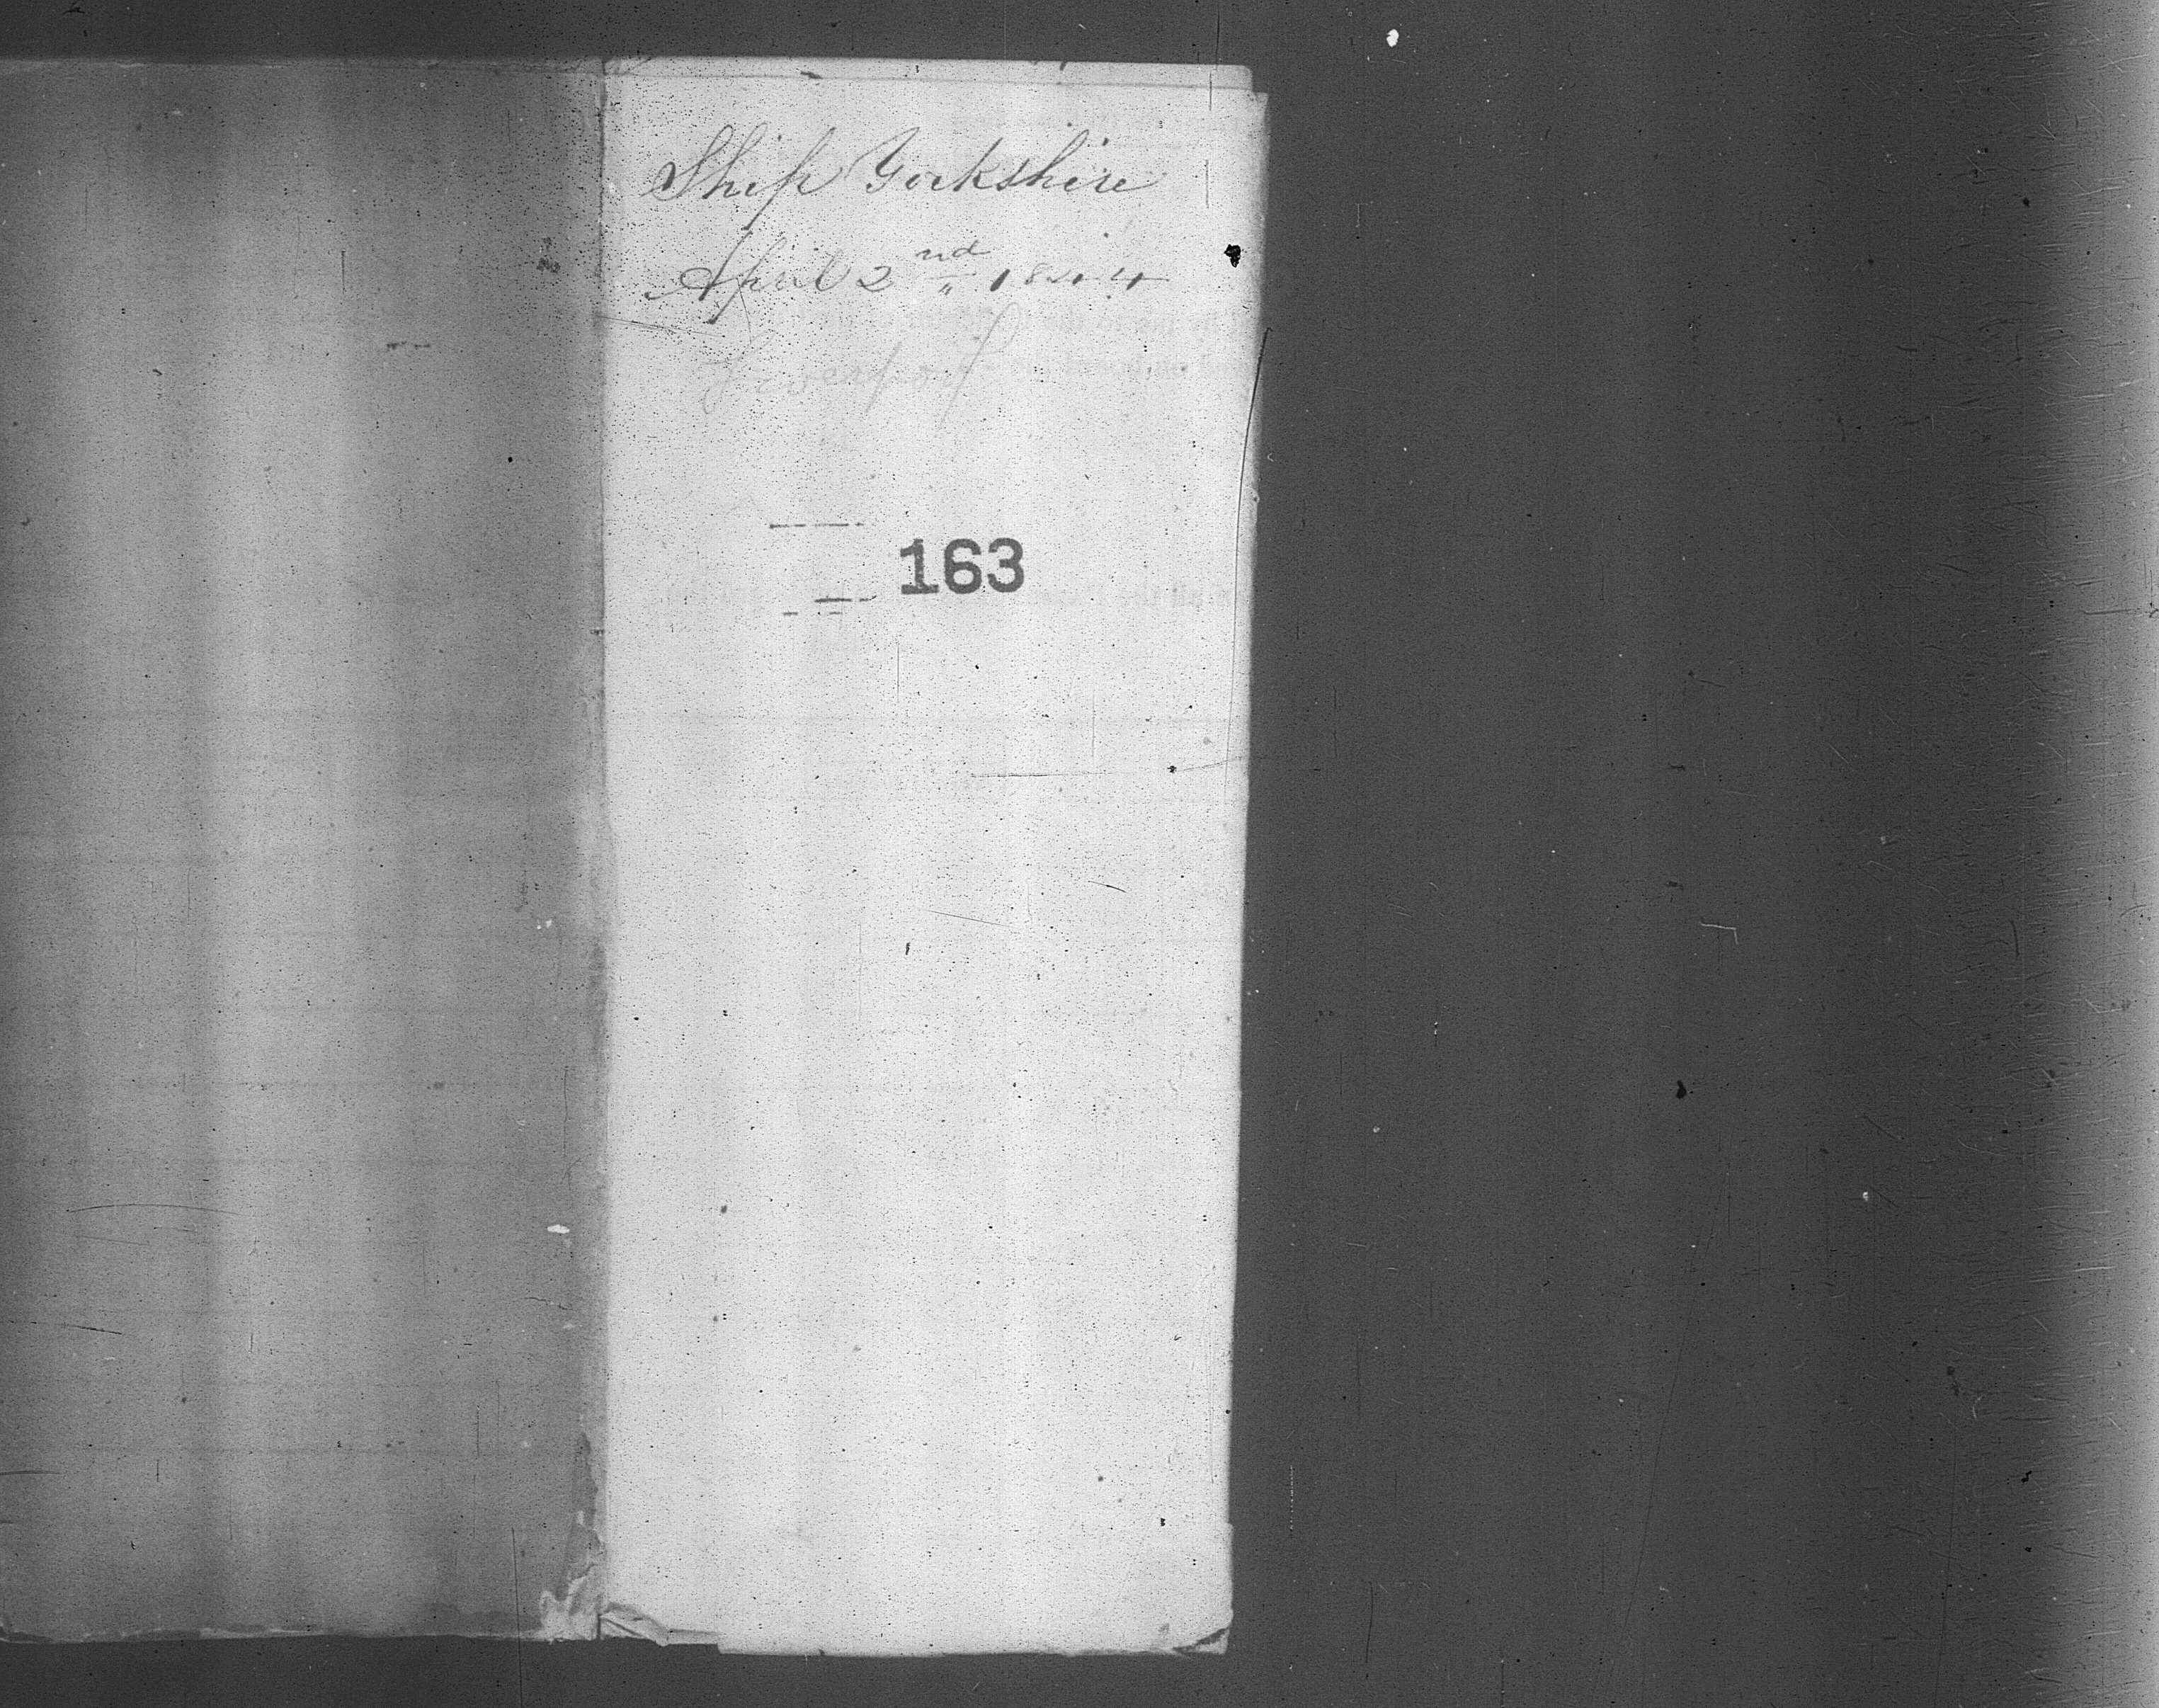 Ship Yorkshire
April 2nd 1844
Liverpool
163